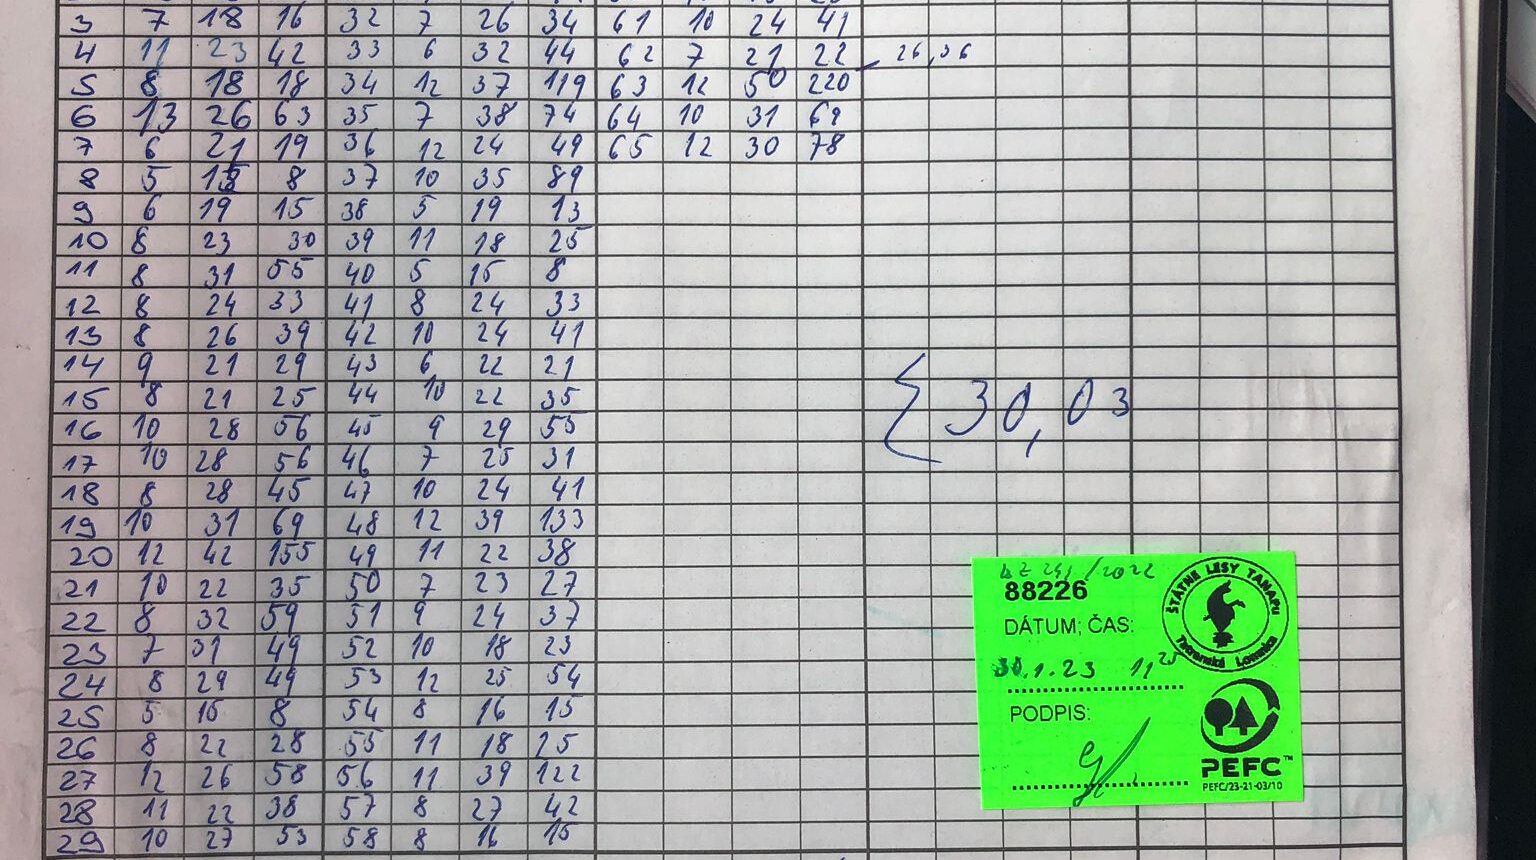 3 7 18 16 32 7 26 34 61 10 24 41
4 11 23 42 33 6 32 44 62 7 21 22 26,36
5 8 18 18 34 12 37 119 63 12 50 220
6 13 26 63 35 7 38 74 64 10 31 68
7 6 21 19 36 12 24 49 65 12 30 78
8 5 15 8 37 10 35 89
9 6 19 15 38 5 19 13
10 8 23 30 39 11 18 25
11 8 31 55 40 5 15 8
12 8 24 33 41 8 24 33
13 8 26 39 42 10 24 41
14 9 21 29 43 6 22 21
15 8 21 25 44 10 22 35
{30,03
16 10 28 56 45 9 29 55
17 10 28 56 46 7 25 31
18 8 28 45 47 10 24 41
19 10 31 69 48 12 39 133
20 12 42 155 49 11 22 38
21 10 22 35 50 7 23 27
22 8 32 59 51 9 24 37
23 7 31 49 52 10 18 23
24 8 29 49 53 12 25 54
25 5 15 8 54 8 16 15
26 8 22 28 55 11 18 25
27 12 26 58 56 11 39 122
28 11 22 38 57 8 27 42
29 10 27 53 58 8 16 15
/2022
88226
DÁTUM; ČAS:
30.1.23 11 25
PODPIS:
ŠTÁTNE LESY TANAPU
Tatranská Lomnica
PEFC™
PEFC/23-21-03/10